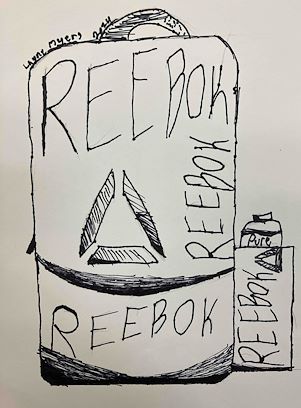 Layne Myers 2024
REEBOK
REEBOK
REEBOK
Pure
REEBOK